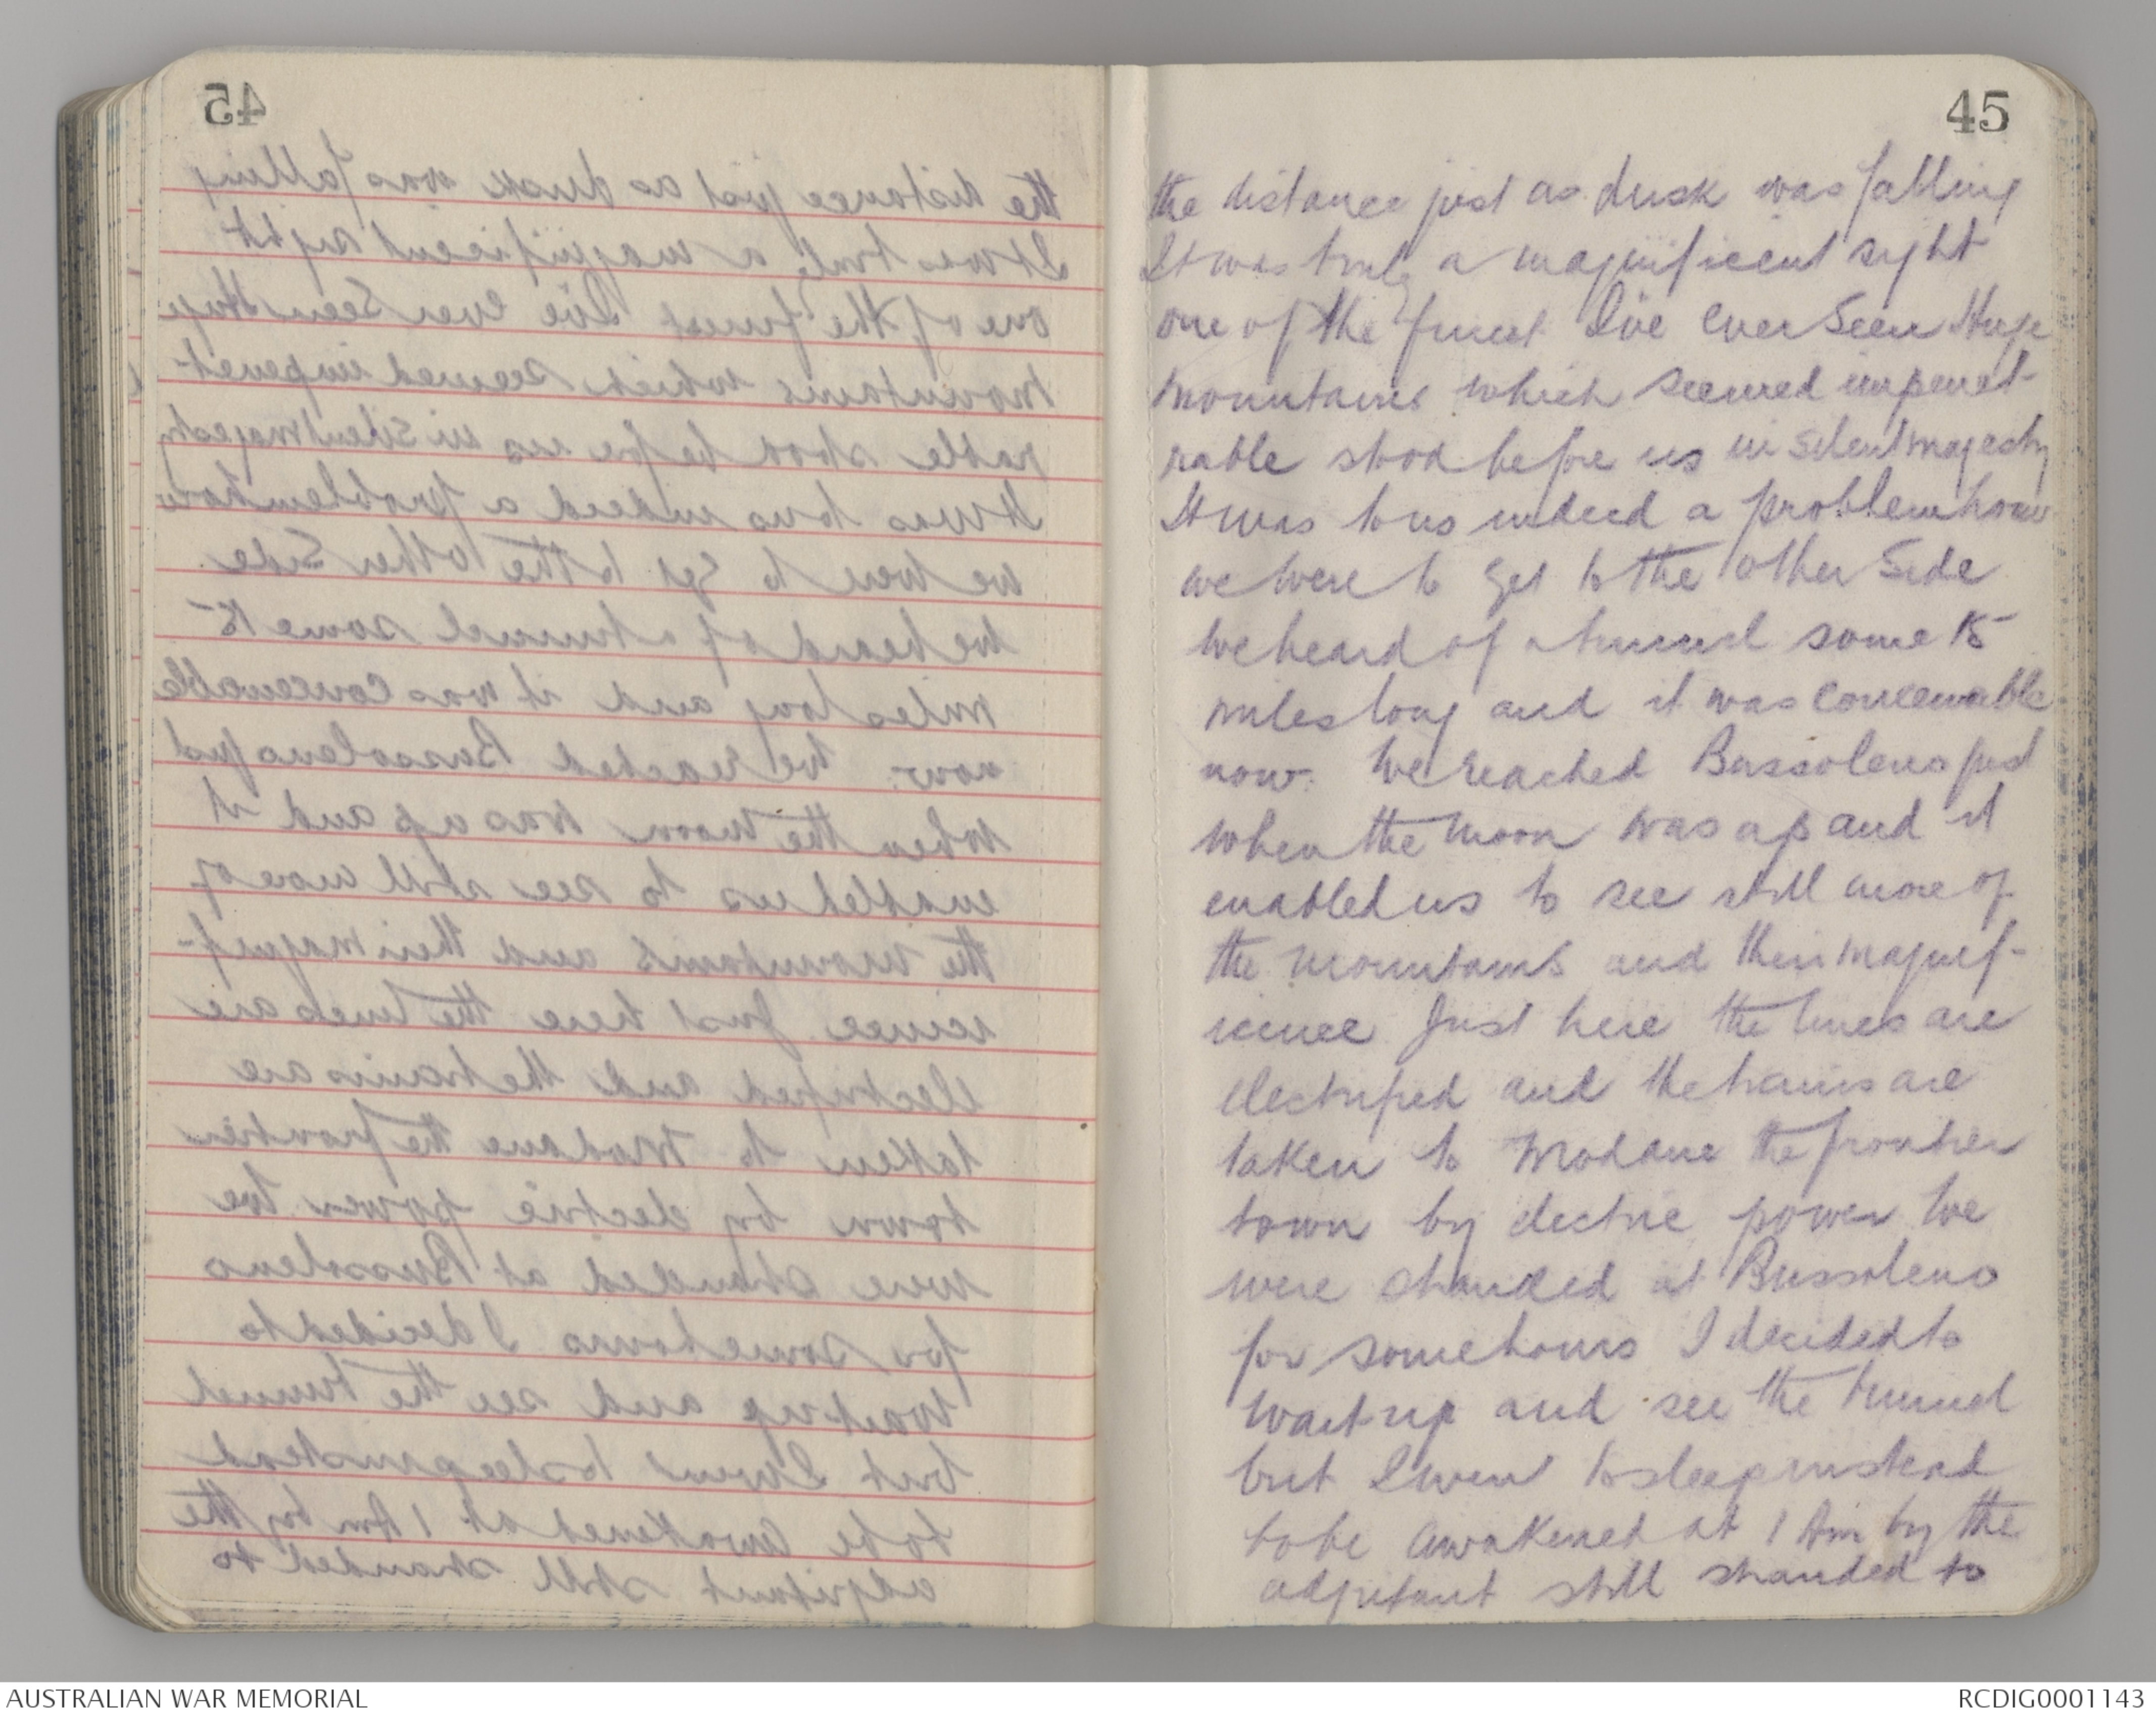 45
the distance just as dusk was falling
It was truly a magnificent sight
one of the finest I've ever seen Huge
mountains which seemed impenet-
rable stood before us in silent majesty
It was to us indeed a problem how
we were to get to the other side
We heard of a tunnel some 15
miles long and it was conceivable
now. We reached Bussoleno just
when the moon was up and it
enabled us to see still more of
the mountains and their magnif-
icence Just here the lines are
electrified and the trains are
taken to Modane the frontier
town by electric power We
were stranded at Bussoleno
for some hours I decided to
wait up and see the tunnel
but I went to sleep instead
to be awakened at 1 Am by the
adjutant still stranded to
45
AUSTRALIAN WAR MEMORIAL
RCDIG0001143